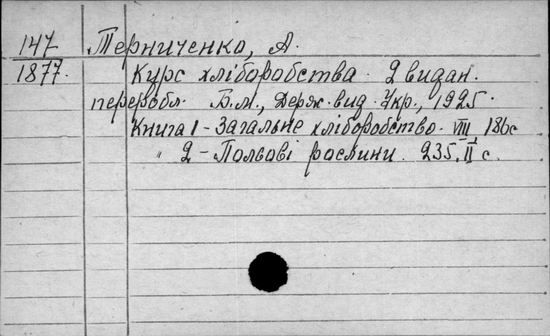 147 Терниченко, А.
1877. Курс хліборобства. 2 видан.
перeробл. Б.м., Держ. вид. Укр., 1925.
Книга 1 - Загальне хліборобство. VIII, 186с
" 2 - Польові рослини. 235, II с.